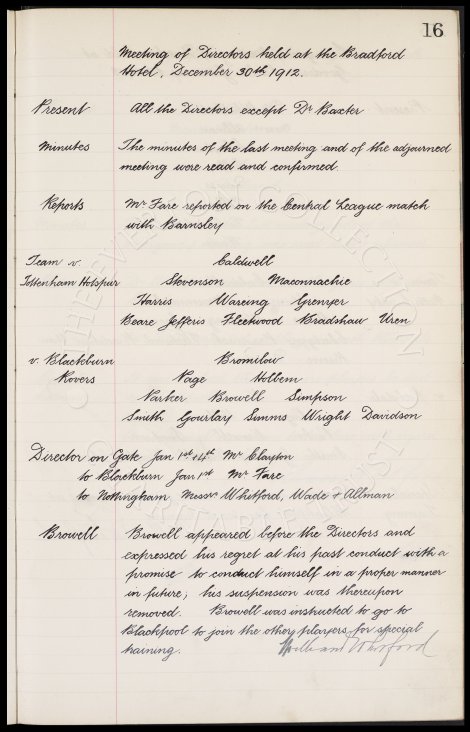 16
Meeting of Directors held at the Bradford
Hotel, December 30th 1912.
Present All the Directors except Dr Baxter
Minutes The minutes of the last meeting and of the adjourned
meeting were read and confirmed.
Reports Mr Fare reported on the Central League match
with Barnsley
Team v. Caldwell
Tottenham Hotspur Stevenson Maconnachie
Harris Wareing Grenyer
Beare Jefferis Fleetwood Bradshaw Uren
v. Blackburn Bromilow
Rovers Page Holbem
Parker Browell Simpson
Smith Gourlay Simms Wright Davidson
Director on Gate Jan 1st & 4th Mr Clayton
to Blackburn Jan 1st Mr Fare
to Nottingham, Messrs Whitford, Wade & Allman
Browell Browell appeared before the Directors and
expressed his regret at his past conduct with a
promise to conduct himself in a proper manner
in future; his suspension was thereupon
removed. Browell was instructed to go to
Blackpool to join the other players for special
training. William Whitford
THE EVERTON COLLECTION
CHARITABLE TRUST